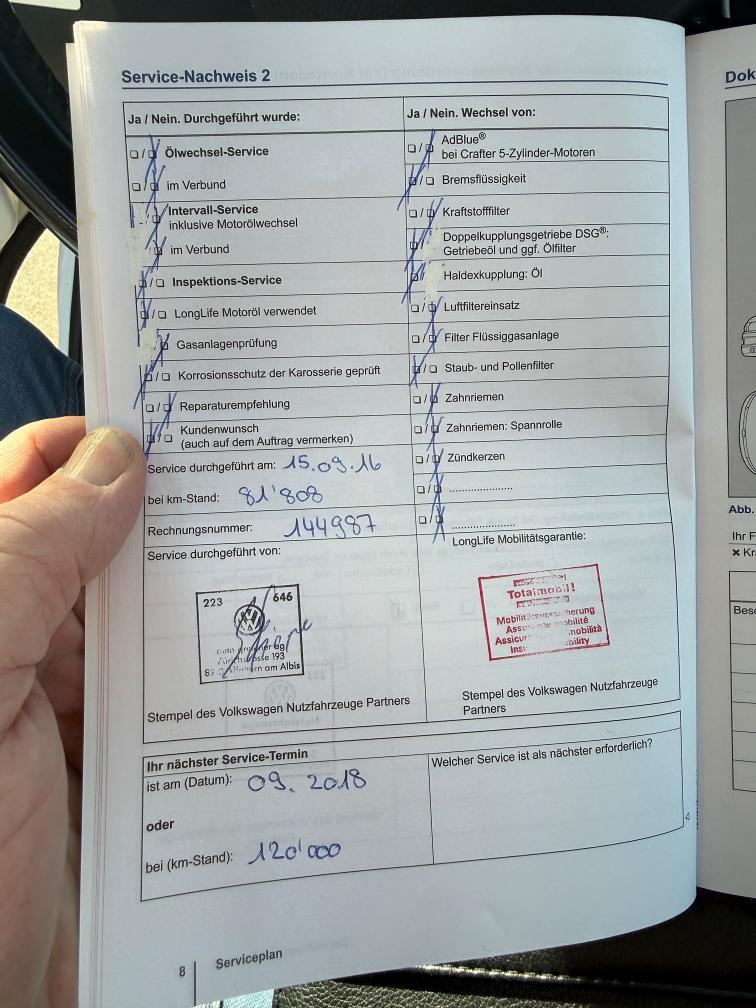 Service-Nachweis 2
Ja / Nein. Durchgeführt wurde:
Ölwechsel-Service
im Verbund
Intervall-Service
inklusive Motorölwechsel
im Verbund
Inspektions-Service
LongLife Motoröl verwendet
Gasanlagenprüfung
Korrosionsschutz der Karosserie geprüft
Reparaturempfehlung
Kundenwunsch
(auch auf dem Auftrag vermerken)
Service durchgeführt am: 15.09.16
bei km-Stand: 81'808
Rechnungsnummer: 144987
Service durchgeführt von:
223 646
193
am Albis
Stempel des Volkswagen Nutzfahrzeuge Partners
Ja / Nein. Wechsel von:
AdBlue®
bei Crafter 5-Zylinder-Motoren
Bremsflüssigkeit
Kraftstofffilter
Doppelkupplungsgetriebe DSG®:
Getriebeöl und ggf. Ölfilter
Haldexkupplung: Öl
Luftfiltereinsatz
Filter Flüssiggasanlage
Staub- und Pollenfilter
Zahnriemen
Zahnriemen: Spannrolle
Zündkerzen
.....................
.....................
LongLife Mobilitätsgarantie:
Totalmobil!
Stempel des Volkswagen Nutzfahrzeuge
Partners
Ihr nächster Service-Termin
ist am (Datum): 09. 2018
oder
bei (km-Stand): 120'000
Welcher Service ist als nächster erforderlich?
8 Serviceplan
Dok
Abb.
Ihr F
× Kr
Besc